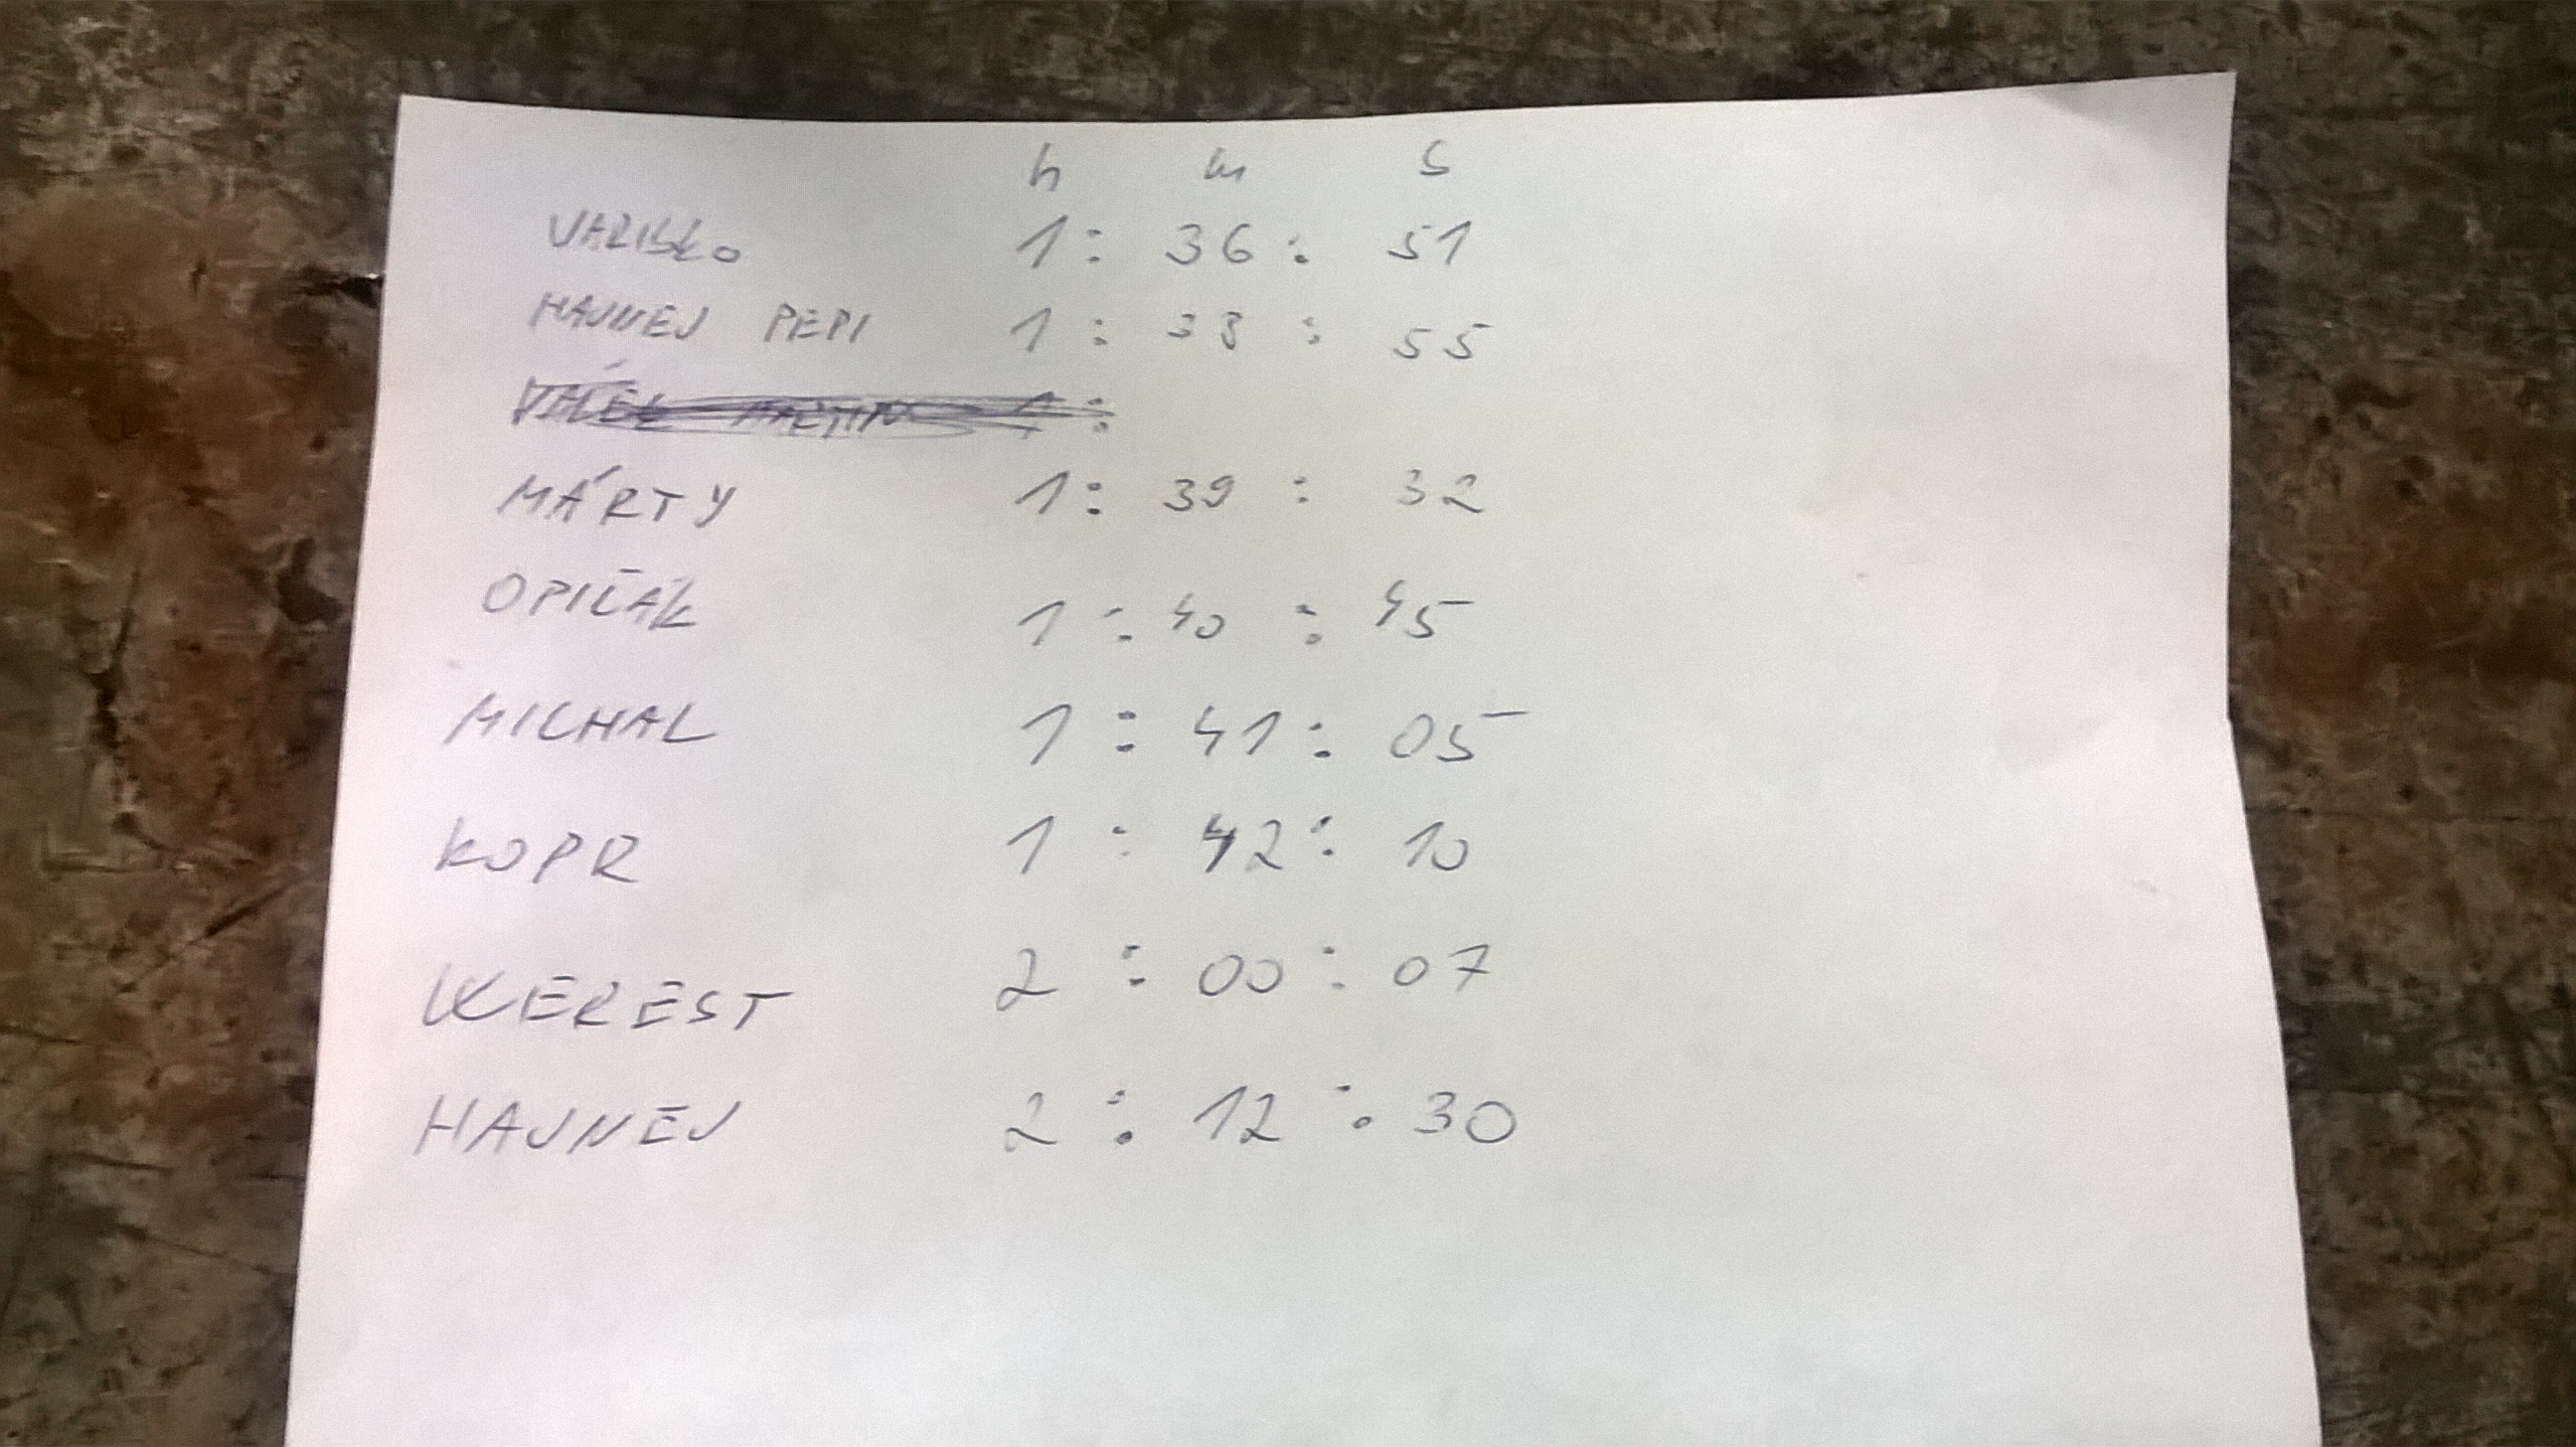 h m s
VARISKO 1 : 36 : 51
HAJNEJ PEPI 1 : 38 : 55
VÁLEK MARTIN 1 :
MÁRTY 1 : 39 : 32
OPIČÁK 1 : 40 : 45
MICHAL 1 : 41 : 05
KOPR 1 : 42 : 10
KEREST 2 : 00 : 07
HAJNEJ 2 : 12 : 30